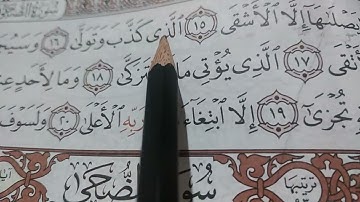 يَصْلَىٰهَآ إِلَّا ٱلْأَشْقَى ١٥ ٱلَّذِى كَذَّبَ وَتَوَلَّىٰ ١٦ وَسَيُ
١٧ ٱلَّذِى يُؤْتِى مَا يَتَزَكَّىٰ ١٨ وَمَا لِأَحَدٍ عِ
تُجْزَىٰٓ ١٩ إِلَّا ٱبْتِغَآءَ رَبِّهِ ٱلْأَعْلَىٰ ٢٠ وَلَسَوْفَ
سُورَةُ ٱلضُّحَىٰ